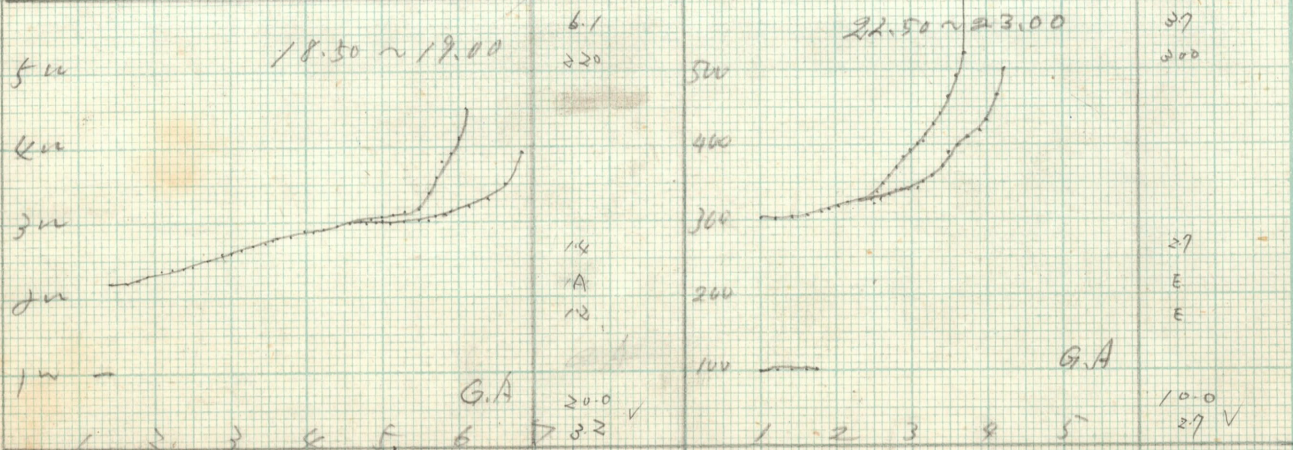 18.50 ~ 19.00
500
400
300
200
100
G.A
1 2 3 4 5 6 7
6.1
220
1.4
A
1.2
20.0
3.2 V
22.50 ~ 23.00
500
400
300
200
100
G.A
1 2 3 4 5
3.7
300
2.7
E
E
10.0
2.7 V